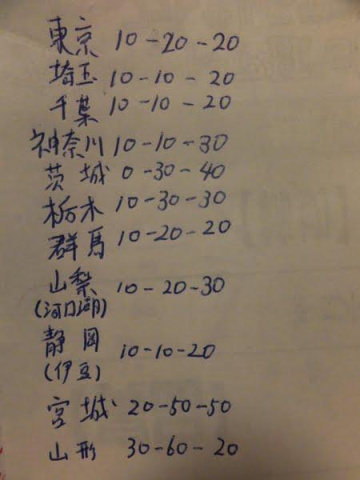 東京 10-20-20
埼玉 10-10-20
千葉 10-10-20
神奈川 10-10-30
茨城 0-30-40
栃木 10-30-30
群馬 10-20-20
山梨 10-20-30
(河口湖)
静岡 10-10-20
(伊豆)
宮城 20-50-50
山形 30-60-20